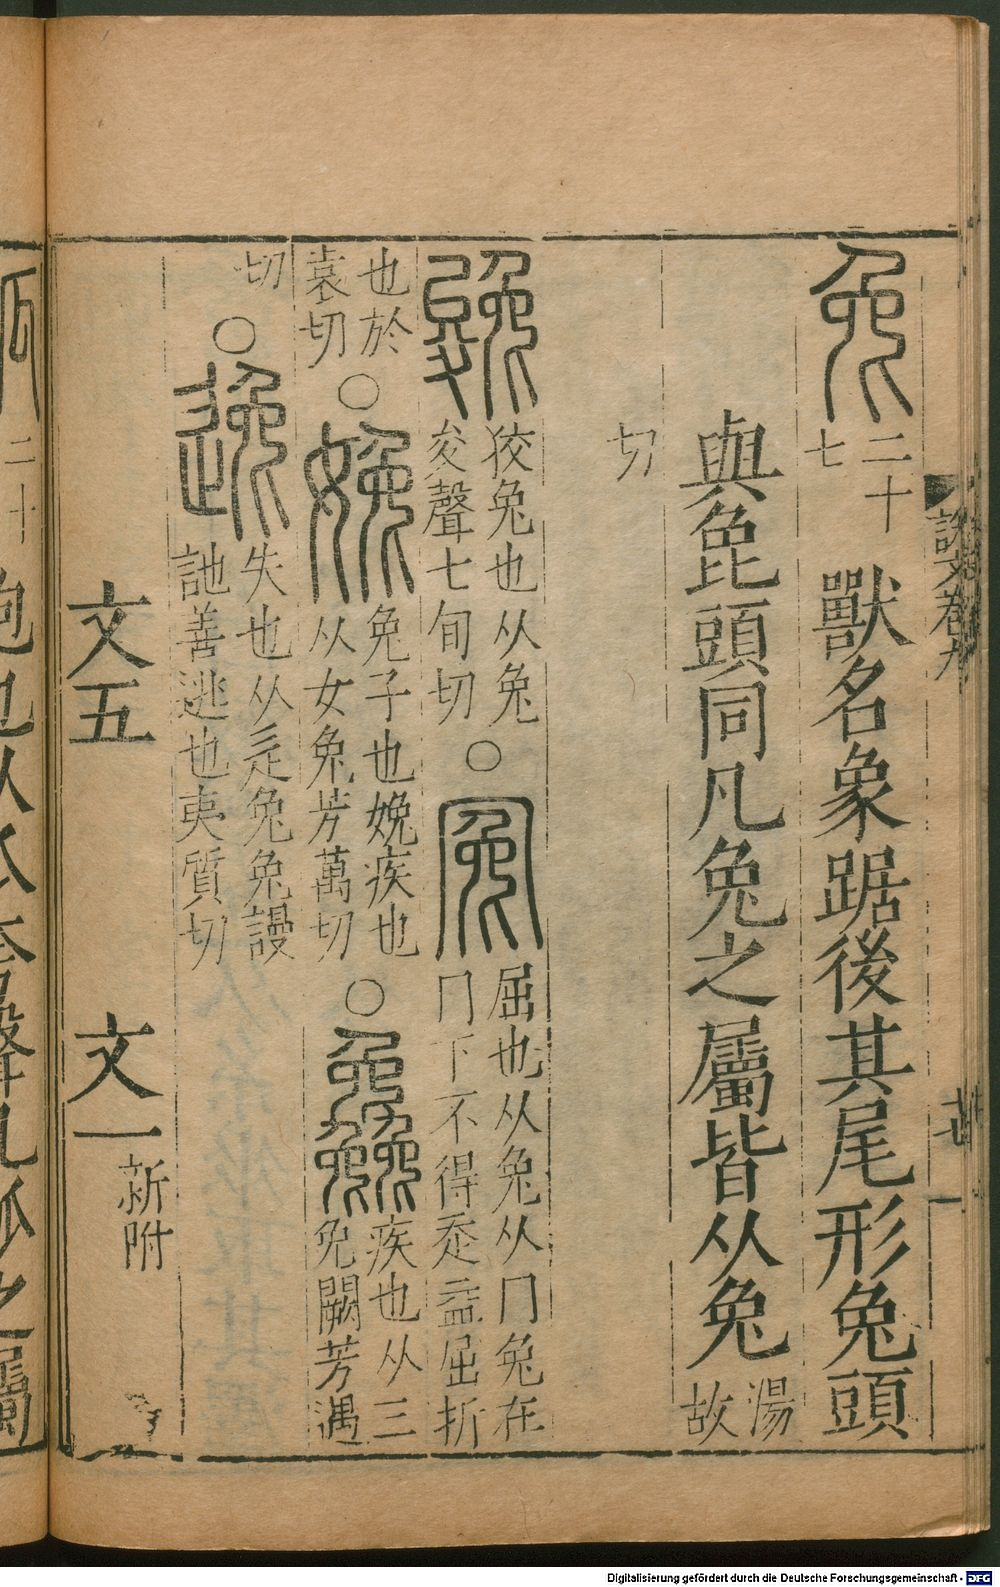 兔
二十
七
獸名象踞後其尾形兔頭
與㲋頭同凡兔之屬皆从兔
湯
故
切
㕙
狡兔也从兔
夋聲七旬切
○
冤
屈也从兔从冂兔在
冂下不得走益屈折
也於
袁切
○
娩
兔子也娩疾也
从女兔芳萬切
○
鱻
疾也从三
兔闕芳遇
切
○
逸
失也从辵兔兔謾
訑善逃也夷質切
文五
文一
新附
說文卷九
廿一
二十
包也从瓜
聲凡瓠之屬
Digitalisierung gefördert durch die Deutsche Forschungsgemeinschaft - DFG